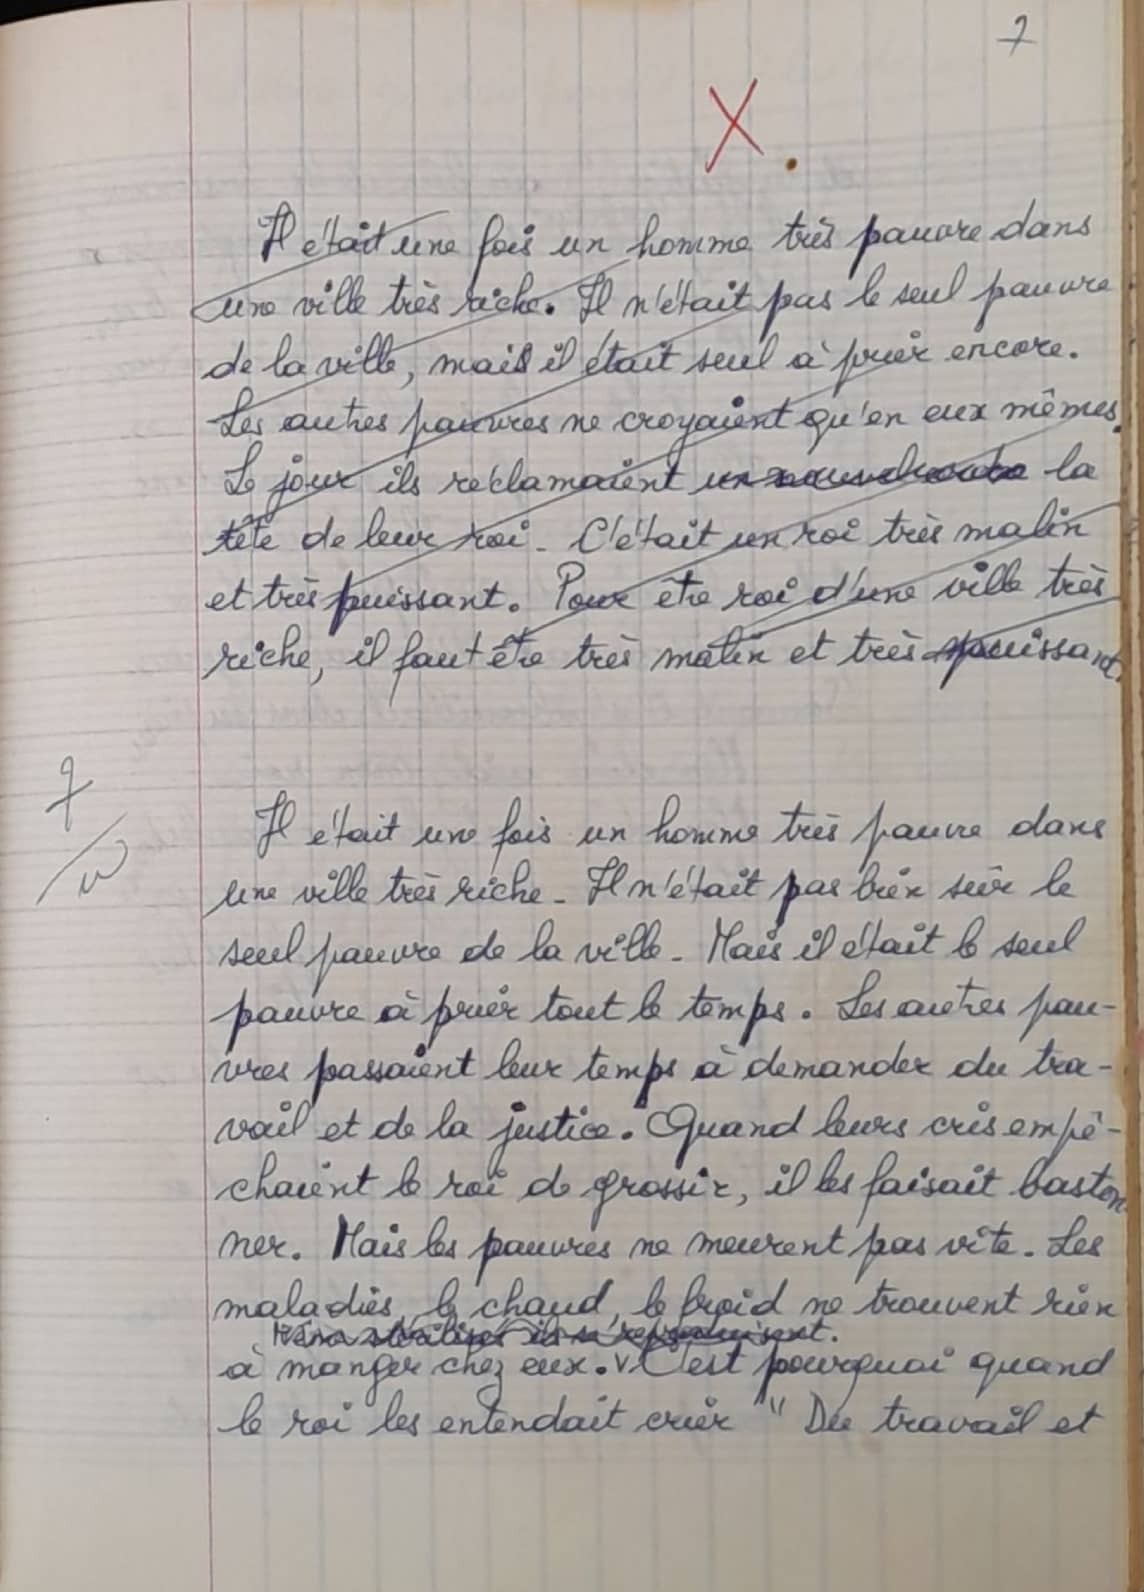 7
X.
Il était une fois un homme très pauvre dans
une ville très riche. Il n'était pas le seul pauvre
de la ville, mais il était seul à prier encore.
Les autres pauvres ne croyaient qu'en eux mêmes.
Le jour ils réclamaient un la
tête de leur roi. C'était un roi très malin
et très puissant. Pour être roi d'une ville très
riche, il faut être très malin et très puissant.
7
Il était une fois un homme très pauvre dans
une ville très riche. Il n'était pas bien sûr le
seul pauvre de la ville. Mais il était le seul
pauvre à prier tout le temps. Les autres pau-
vres passaient leur temps à demander du tra-
vail et de la justice. Quand leurs cris empê-
chaient le roi de grossir, il les faisait baston
ner. Mais les pauvres ne meurent pas vite. Les
maladies, le chaud, le froid ne trouvent rien
ils se reproduisent.
à manger chez eux. C'est pourquoi quand
le roi les entendait crier " Du travail et